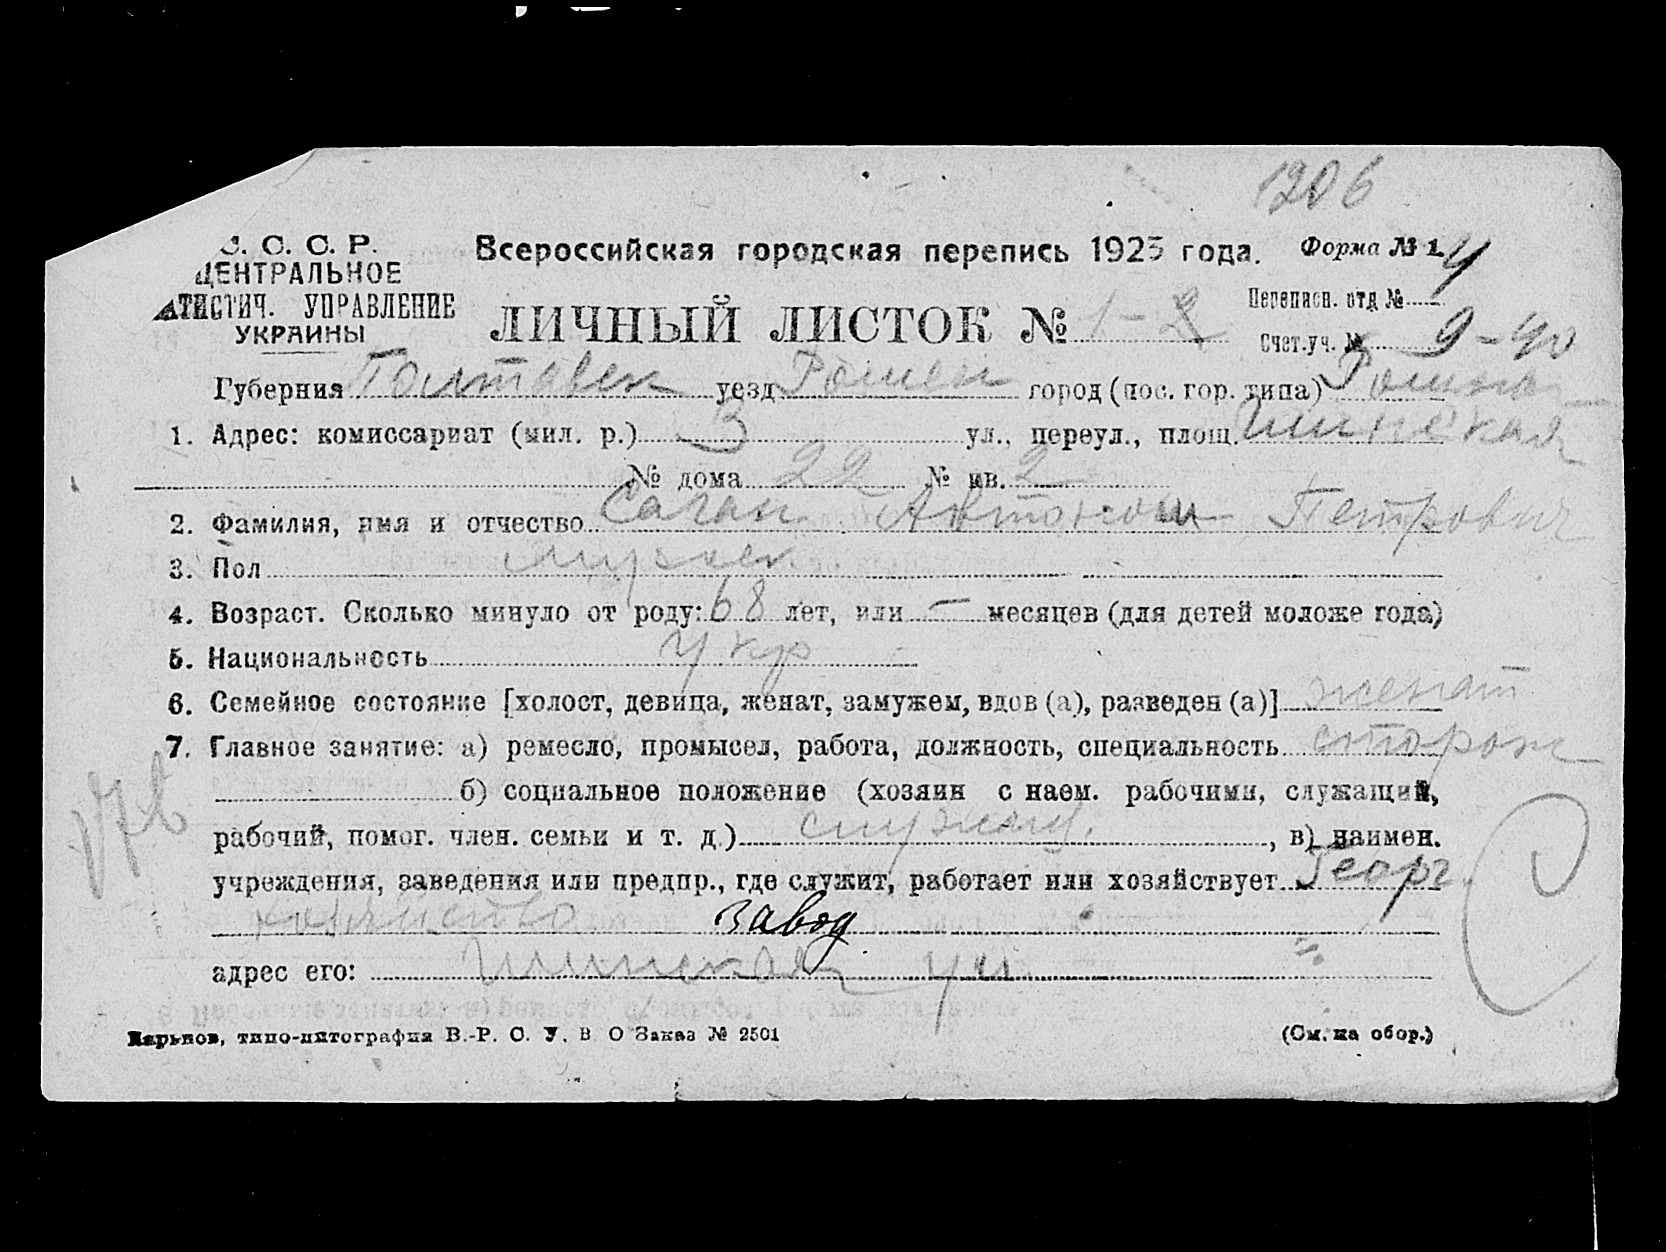 1206
С. С. С. Р.
ЦЕНТРАЛЬНОЕ
АТИСТИЧ. УПРАВЛЕНИЕ
УКРАИНЫ
Всероссийская городская перепись 1923 года. Форма № 1.
ЛИЧНЫЙ ЛИСТОК № 1-2
Переписн. отд № 4
Счет.уч. № 9-40
Губерния Полтавск уезд Ромен город (пос. гор. типа) Ромны
1. Адрес: комиссариат (мил. р.) 3 ул., переул., площ. Илинская
№ дома 22 № кв. 2
2. Фамилия, имя и отчество Саган Автоном Петрович
3. Пол мужск
4. Возраст. Сколько минуло от роду: 68 лет, или — месяцев (для детей моложе года)
5. Национальность укр
6. Семейное состояние [холост, девица, женат, замужем, вдов (а), разведен (а)] женат
7. Главное занятие: а) ремесло, промысел, работа, должность, специальность сторож
б) социальное положение (хозяин с наем. рабочими, служащий,
рабочий, помог. член. семьи и т. д.) служащ. , в) наимен.
учреждения, заведения или предпр., где служит, работает или хозяйствует
завод
адрес его: Илинская ул
Харьков, типо-литография В.-Р. С. У. В О Заказ № 2501 (См. на обор.)